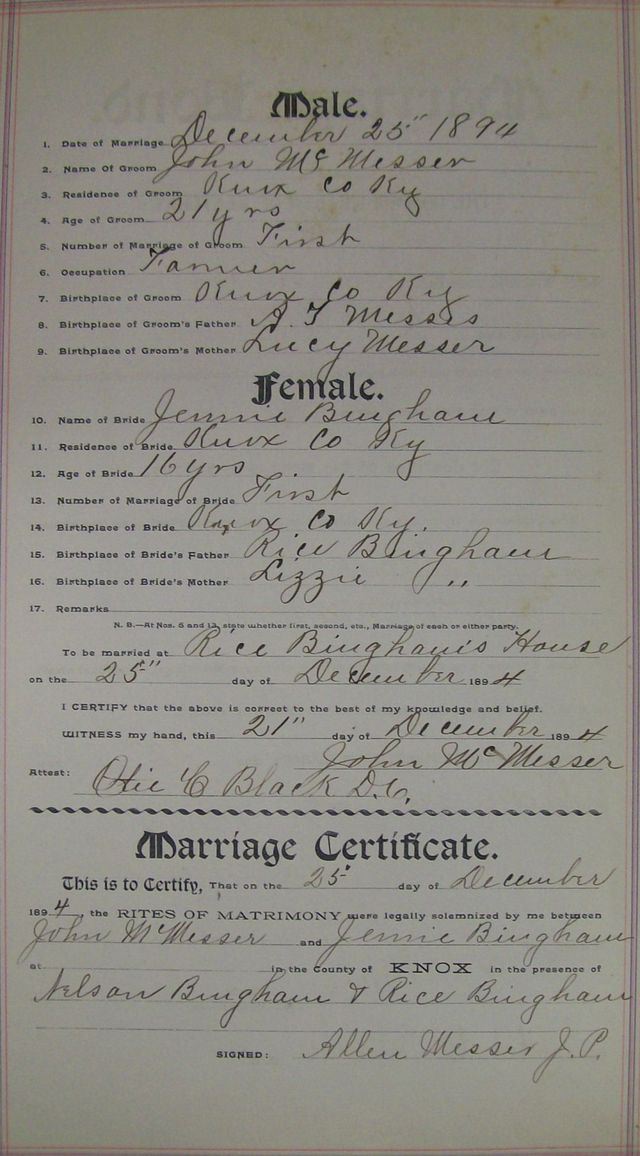 Male.
1. Date of Marriage December 25" 1894
2. Name Of Groom John Mc Messer
3. Residence of Groom Knox Co Ky
4. Age of Groom 21 yrs
5. Number of Marriage of Groom First
6. Occupation Farmer
7. Birthplace of Groom Knox Co Ky
8. Birthplace of Groom's Father Messer
9. Birthplace of Groom's Mother Lucy Messer
Female.
10. Name of Bride Jennie Bingham
11. Residence of Bride Knox Co Ky
12. Age of Bride 16 yrs
13. Number of Marriage of Bride First
14. Birthplace of Bride Knox Co Ky.
15. Birthplace of Bride's Father Rice Bingham
16. Birthplace of Bride's Mother Lizzie "
17. Remarks
N. B.—At Nos. 5 and 13, state whether first, second, etc., Marriage of each or either party.
To be married at Rice Bingham's House
on the 25" day of December 1894
I CERTIFY that the above is correct to the best of my knowledge and belief.
WITNESS my hand, this 21" day of December 1894
John Mc Messer
Attest: Otie C Black D.C.
Marriage Certificate.
This is to Certify, That on the 25 day of December
1894, the RITES OF MATRIMONY were legally solemnized by me between
John McMesser and Jennie Bingham
at in the County of KNOX in the presence of
Nelson Bingham & Rice Bingham
SIGNED: Allen Messer J.P.